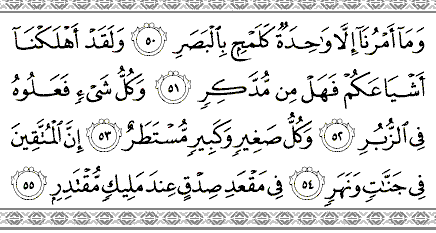 وَمَآ أَمْرُنَآ إِلَّا وَٰحِدَةٌ كَلَمْحٍۭ بِٱلْبَصَرِ ٥٠ وَلَقَدْ أَهْلَكْنَآ
أَشْيَاعَكُمْ فَهَلْ مِن مُّدَّكِرٍ ٥١ وَكُلُّ شَىْءٍ فَعَلُوهُ
فِى ٱلزُّبُرِ ٥٢ وَكُلُّ صَغِيرٍ وَكَبِيرٍ مُّسْتَطَرٌ ٥٣ إِنَّ ٱلْمُتَّقِينَ
فِى جَنَّٰتٍ وَنَهَرٍ ٥٤ فِى مَقْعَدِ صِدْقٍ عِندَ مَلِيكٍ مُّقْتَدِرٍۭ ٥٥